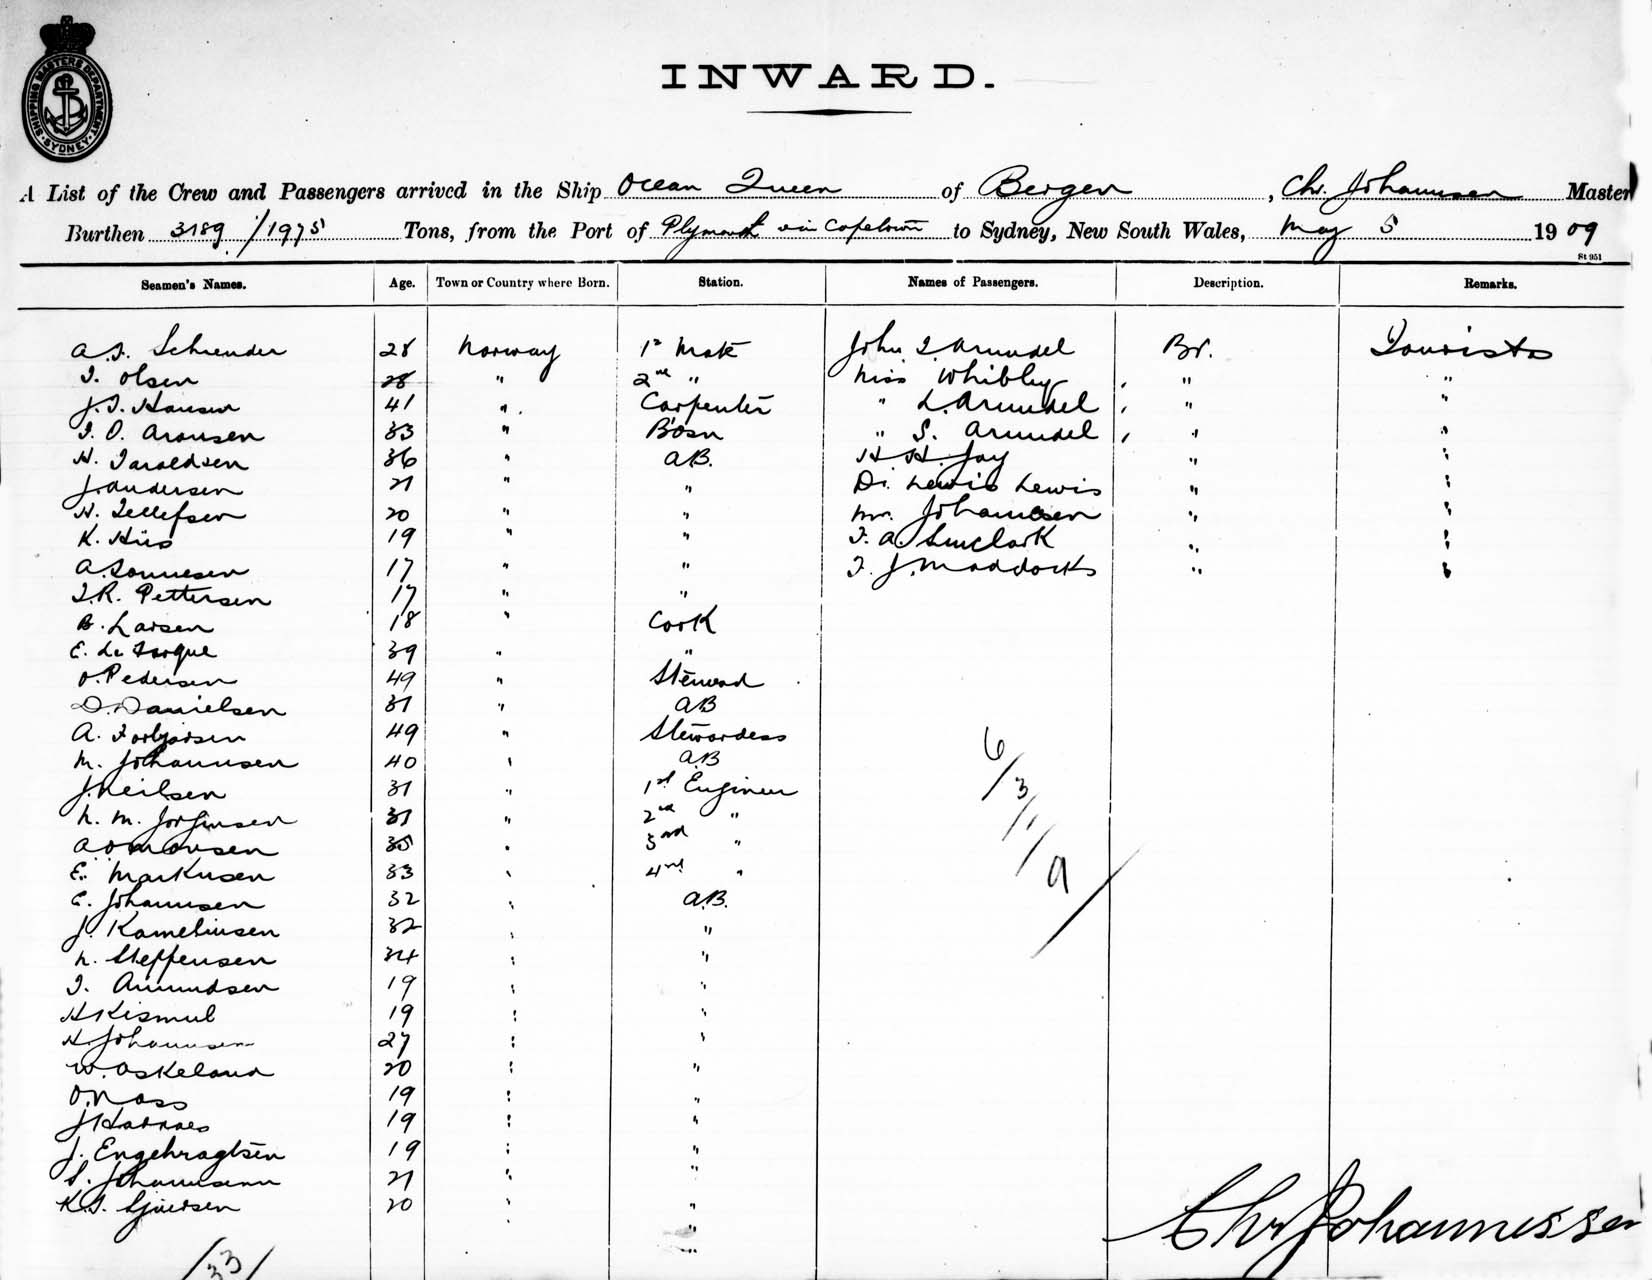 SHIPPING MASTERS DEPARTMENT
SYDNEY
INWARD.
A List of the Crew and Passengers arrived in the Ship Ocean Queen of Bergen, Chr. Johannsen Master
Burthen 3189/1975 Tons, from the Port of Plymouth via Capetown to Sydney, New South Wales, May 5 1909
St 951
Seamen's Names. Age. Town or Country where Born. Station. Names of Passengers. Description. Remarks.
28 Norway 1st Mate John T. Arundel Br. Tourists
Olsen 28 " 2nd " Miss Whibley " "
J. Hansen 41 " Carpenter " L. Arundel " "
Aronsen 33 " Bosn " S. Arundel " "
H. Taraldsen 36 " A.B. H. H. Jay " "
J. Andersen 21 " " Dr. Lewis Lewis " "
H. Tellefsen 20 " " Mr. Johannesen " "
K. 19 " " " "
A. Tonnesen 17 " " T. J. Maddocks " "
T. R. Pettersen 17 " "
B. Larsen 18 " Cook
39 " "
O. Pedersen 49 " Steward
D. Danielsen 31 " AB
A. Torbjorsen 49 " Stewardess
M. Johannsen 40 " A.B
J. Neilsen 31 " 1st Engineer
N. M. Jorginsen 31 " 2nd "
35 " 3rd "
E. Markusen 33 " 4th "
E. Johannsen 32 " A.B.
J. Kameliusen 32 " "
N. Steffensen 34 " "
Amundsen 19 " "
H Kismul 19 " "
H Johannsen 27 " "
W. Askeland 20 " "
O. Nass 19 " "
19 " "
J. Engebragtsen 19 " "
S. Johannsenn 21 " "
20 " "
6/3/11/9
33
Chr Johannessen